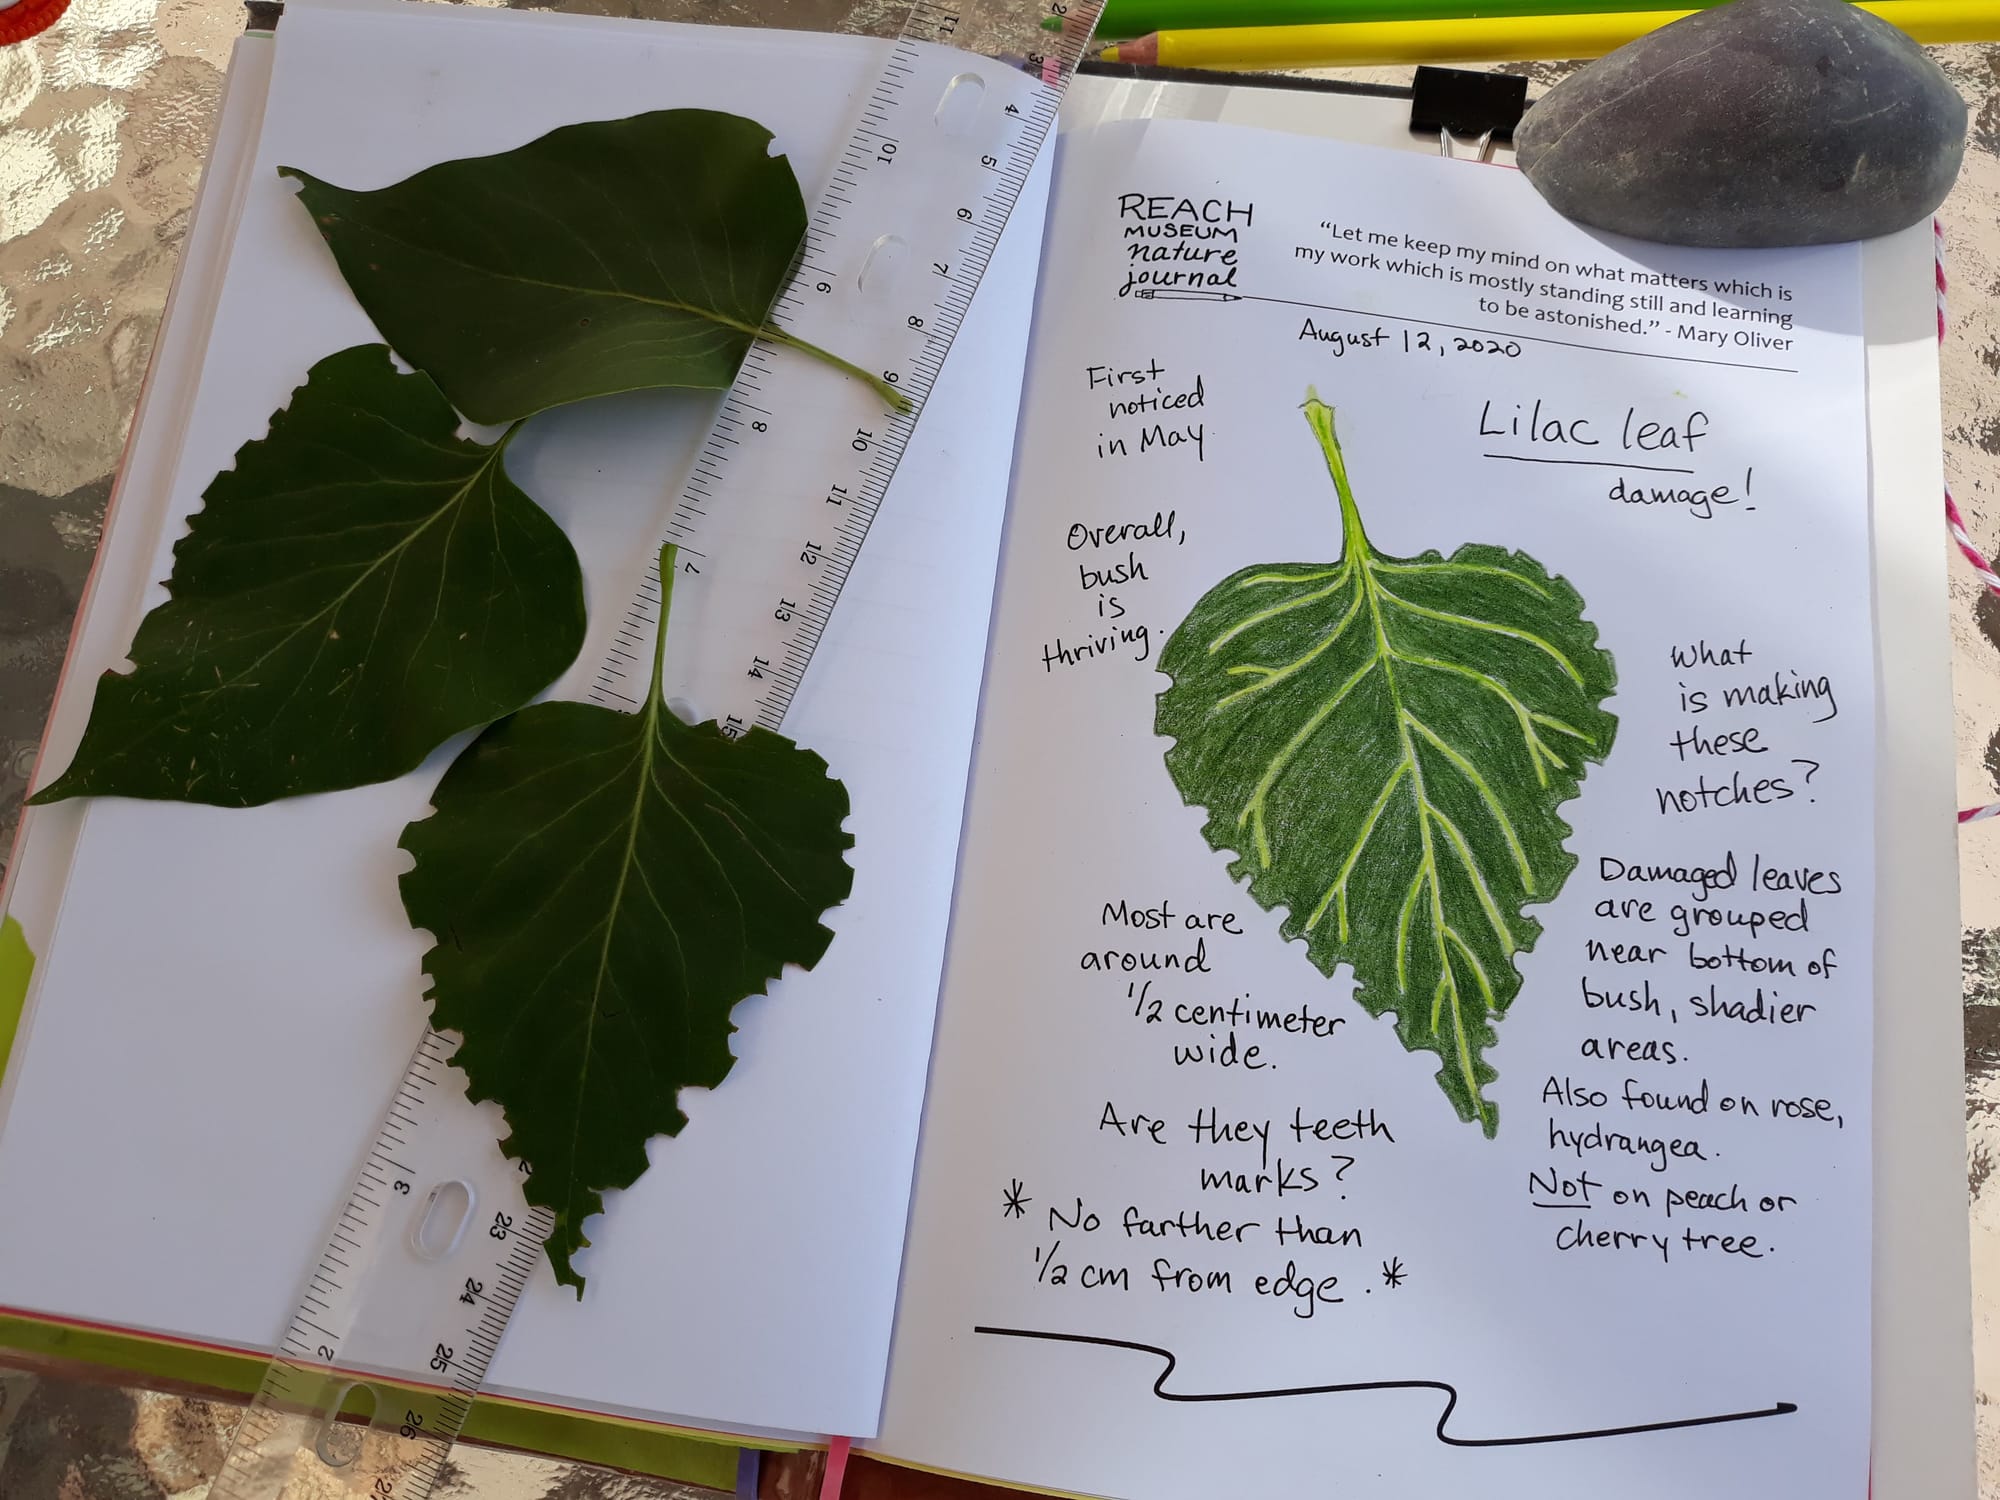 REACH
MUSEUM
nature
journal
“Let me keep my mind on what matters which is
my work which is mostly standing still and learning
to be astonished.” - Mary Oliver
August 12, 2020
Lilac leaf
damage!
First
noticed
in May
Overall,
bush
is
thriving.
What
is making
these
notches?
Most are
around
1/2 centimeter
wide.
Are they teeth
marks?
* No farther than
1/2 cm from edge. *
Damaged leaves
are grouped
near bottom of
bush, shadier
areas.
Also found on rose,
hydrangea.
Not on peach or
cherry tree.
11
10
9
8
7
3
2
2
3
4
5
6
7
8
9
10
11
12
13
14
15
23
24
25
26